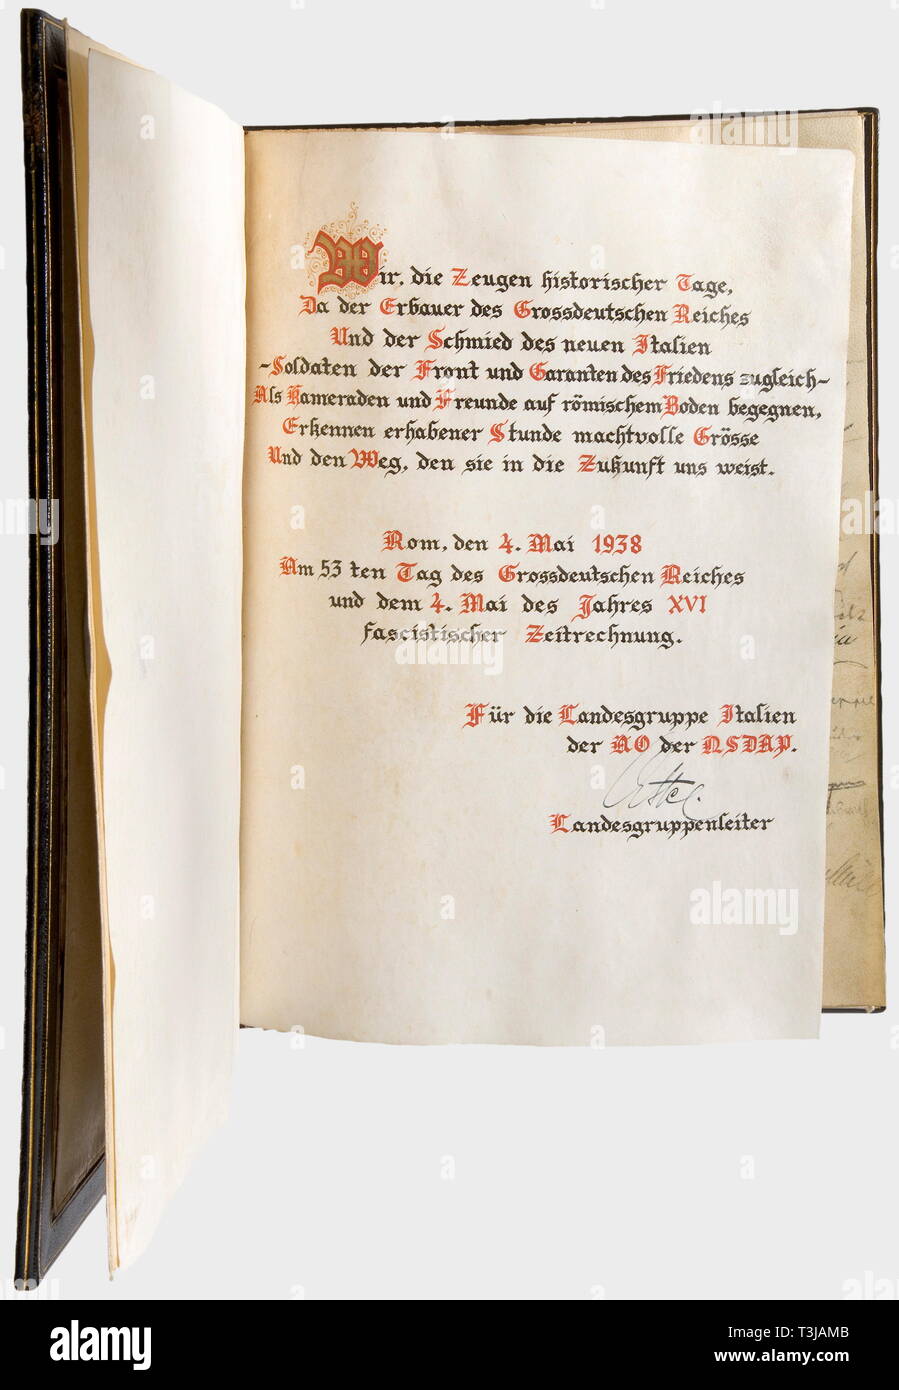 Wir, die Zeugen historischer Tage,
Da der Erbauer des Grossdeutschen Reiches
Und der Schmied des neuen Italien
~Soldaten der Front und Garanten des Friedens zugleich~
Als Kameraden und Freunde auf römischem Boden begegnen,
Erkennen erhabener Stunde machtvolle Grösse
Und den Weg, den sie in die Zukunft uns weist.
Rom, den 4. Mai 1938
Am 53 ten Tag des Grossdeutschen Reiches
und dem 4. Mai des Jahres XVI
fascistischer Zeitrechnung.
Für die Landesgruppe Italien
der AO der NSDAP.
Landesgruppenleiter
alamy
Image ID: T3JAMB
www.alamy.com